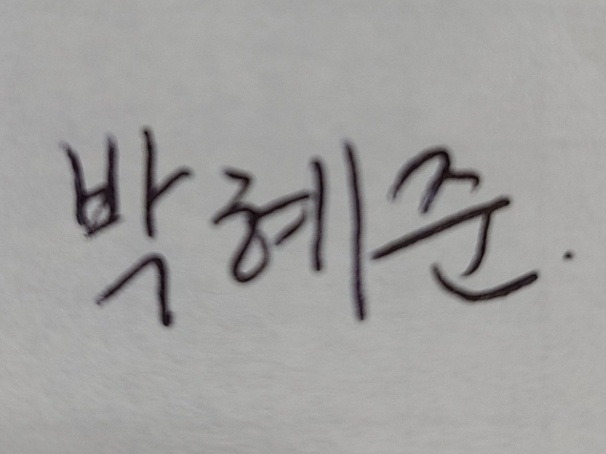 박혜준.